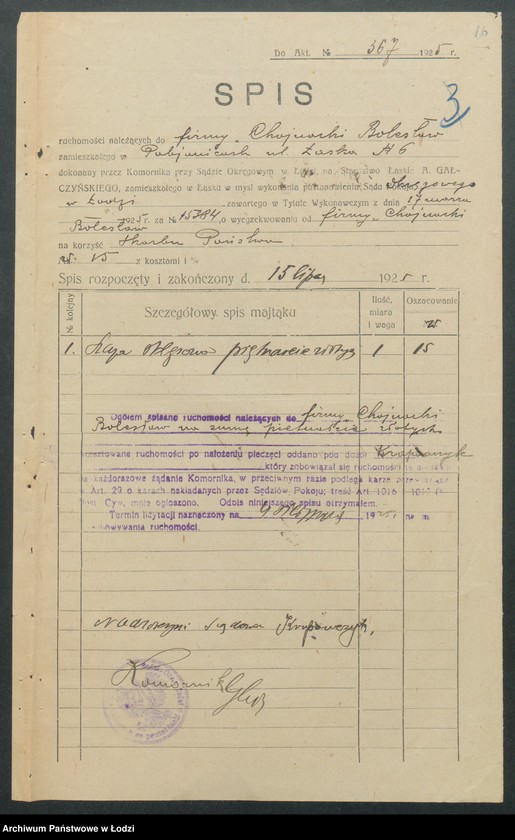 16
Do Akt. № 367 1925 r.
3
SPIS
ruchomości należących do firmy „Chojnacki Bolesław
zamieszkałego w Pabjanicach ul. Łaska № 6
dokonany przez Komornika przy Sądzie Okręgowym w Łodzi, na Starostwo Łaskie A. GAŁ-
CZYŃSKIEGO, zamieszkałego w Łasku w myśl wykonania postanowienia Sądu Pokoju Okręgowego
w Łodzi zawartego w Tytule Wykonawczym z dnia 17 marca
1925 r. za № 15384, o wyegzekwowanie od firmy „Chojnacki
Bolesław
na korzyść Skarbu Państwa
zł. 15 z kosztami i %
Spis rozpoczęty i zakończony d. 15 lipca 1925 r.
№ kolejny
Szczegółowy spis majątku
Ilość, miara i waga
Oszacowanie
zł.
1. piętnaście złotych 1 15
Ogółem spisano ruchomości należących do firmy Chojnacki
Bolesław na sumę piętnaście złotych
ruchomości po nałożeniu pieczęci oddano pod dozór Krapczyk
który zobowiązał się ruchomości
na każdorazowe żądanie Komornika, w przeciwnym razie podlega karze
Art. 29 o karach nakładanych przez Sędziów Pokoju; treść Art. 1016
Cyw. mnie ogłoszono. Odpis niniejszego spisu otrzymałem.
Termin licytacji naznaczony na 192
ruchomości.
Krapczyk
Komornik
Archiwum Państwowe w Łodzi